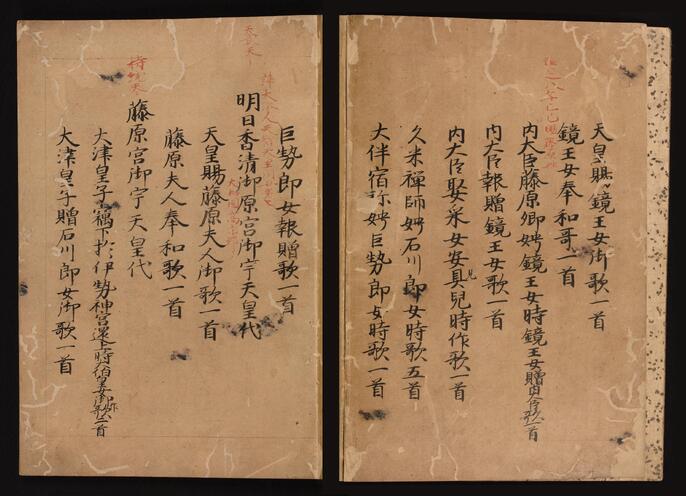 天皇賜鏡王女御歌一首
鏡王女奉和哥一首
内大臣藤原卿娉鏡王女時鏡王女贈内大臣歌一首
内大臣報贈鏡王女歌一首
内大臣娶采女安見兒時作歌一首
久米禅師娉石川郎女時歌五首
大伴宿祢娉巨勢郎女時歌一首
巨勢郎女報贈歌一首
明日香清御原宮御宇天皇代
天皇賜藤原夫人御歌一首
藤原夫人奉和歌一首
藤原宮御宇天皇代
大津皇子竊下於伊勢神宮還上時伯皇女御作歌一首
大津皇子贈石川郎女御歌一首